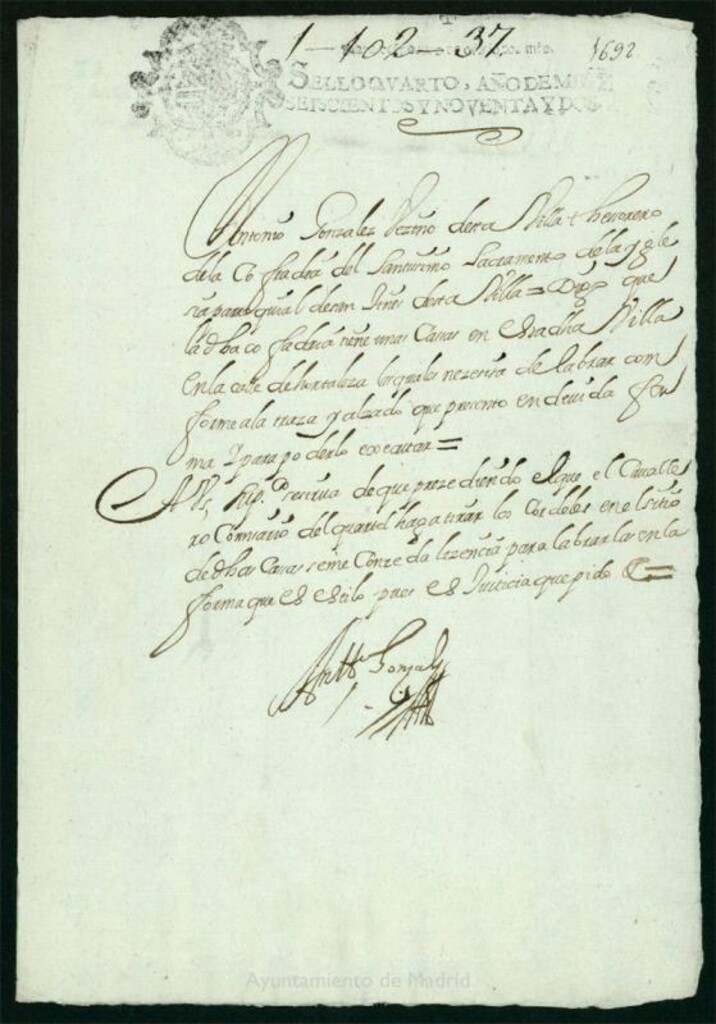 1 - 102 - 37
1692
SELLO QVARTO, AÑO DE MIL
SEISCIENTOS Y NOVENTA Y DOS
Antonio Gonzalez Vezino desta Villa
de la Cofradia del Santissimo Sacramento de la Ygle
sia parroquial de san Gines desta Villa = Digo que
la dha cofradia tiene unas Casas en esta dha Villa
en la calle de hortaleza las quales nezesita de labrar con
forme a la traza y alzado que presento en devida for
ma Y para poderlo executar =
A Vs, supp.co se sirva de que prezediendo el que el Cavalle
ro Comisario del quartel haga tirar los Cordeles en el sitio
de dhas Casas se me Conzeda lizencia para labrarlas en la
forma que es estilo pues es Justicia que pido &
Antt.o Gonzalez
Ayuntamiento de Madrid